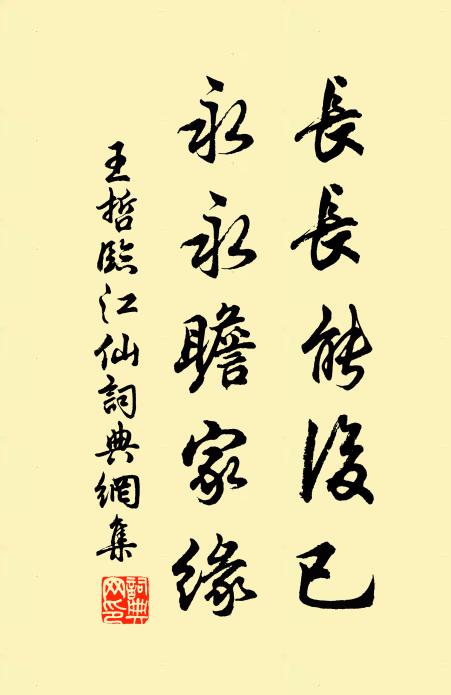 長長能後已
永永瞻家緣
王哲臨江仙詞典網集
詞典
网印